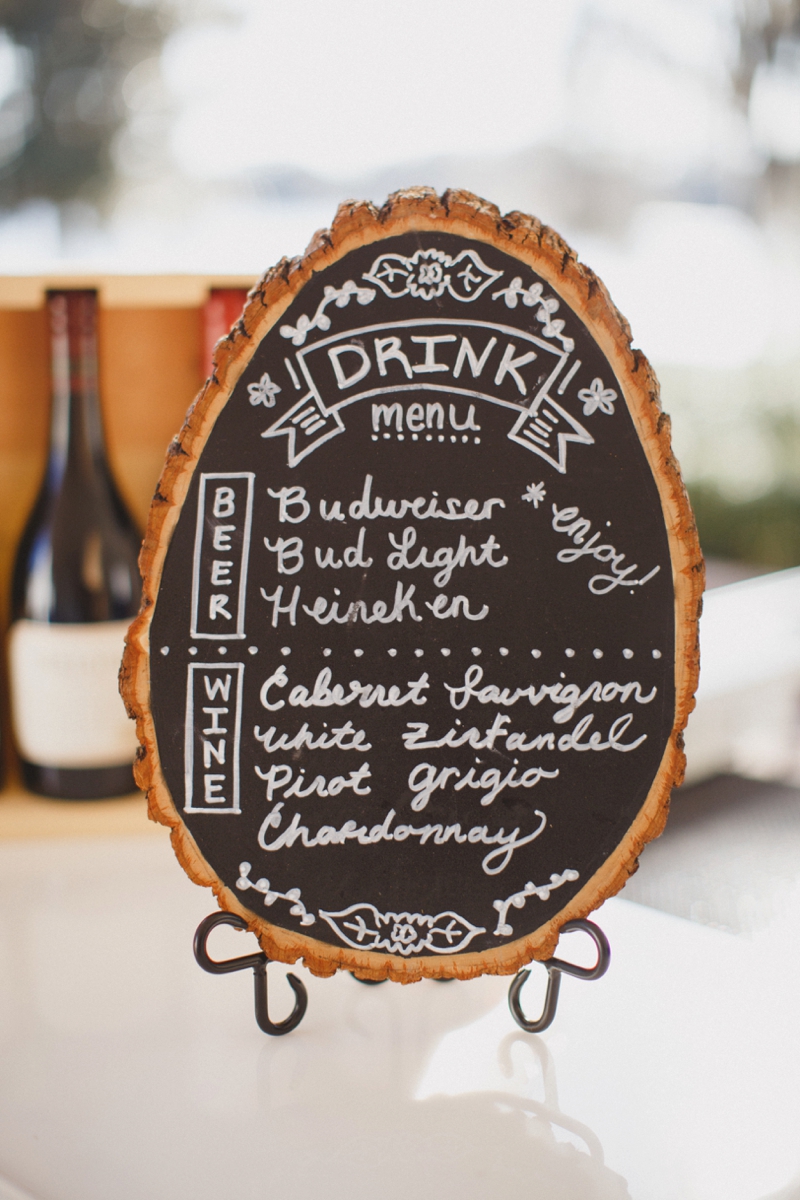 DRINK
menu
BEER
Budweiser
Bud Light
Heineken
* enjoy!
WINE
Cabernet Sauvignon
White Zinfandel
Pinot grigio
Chardonnay